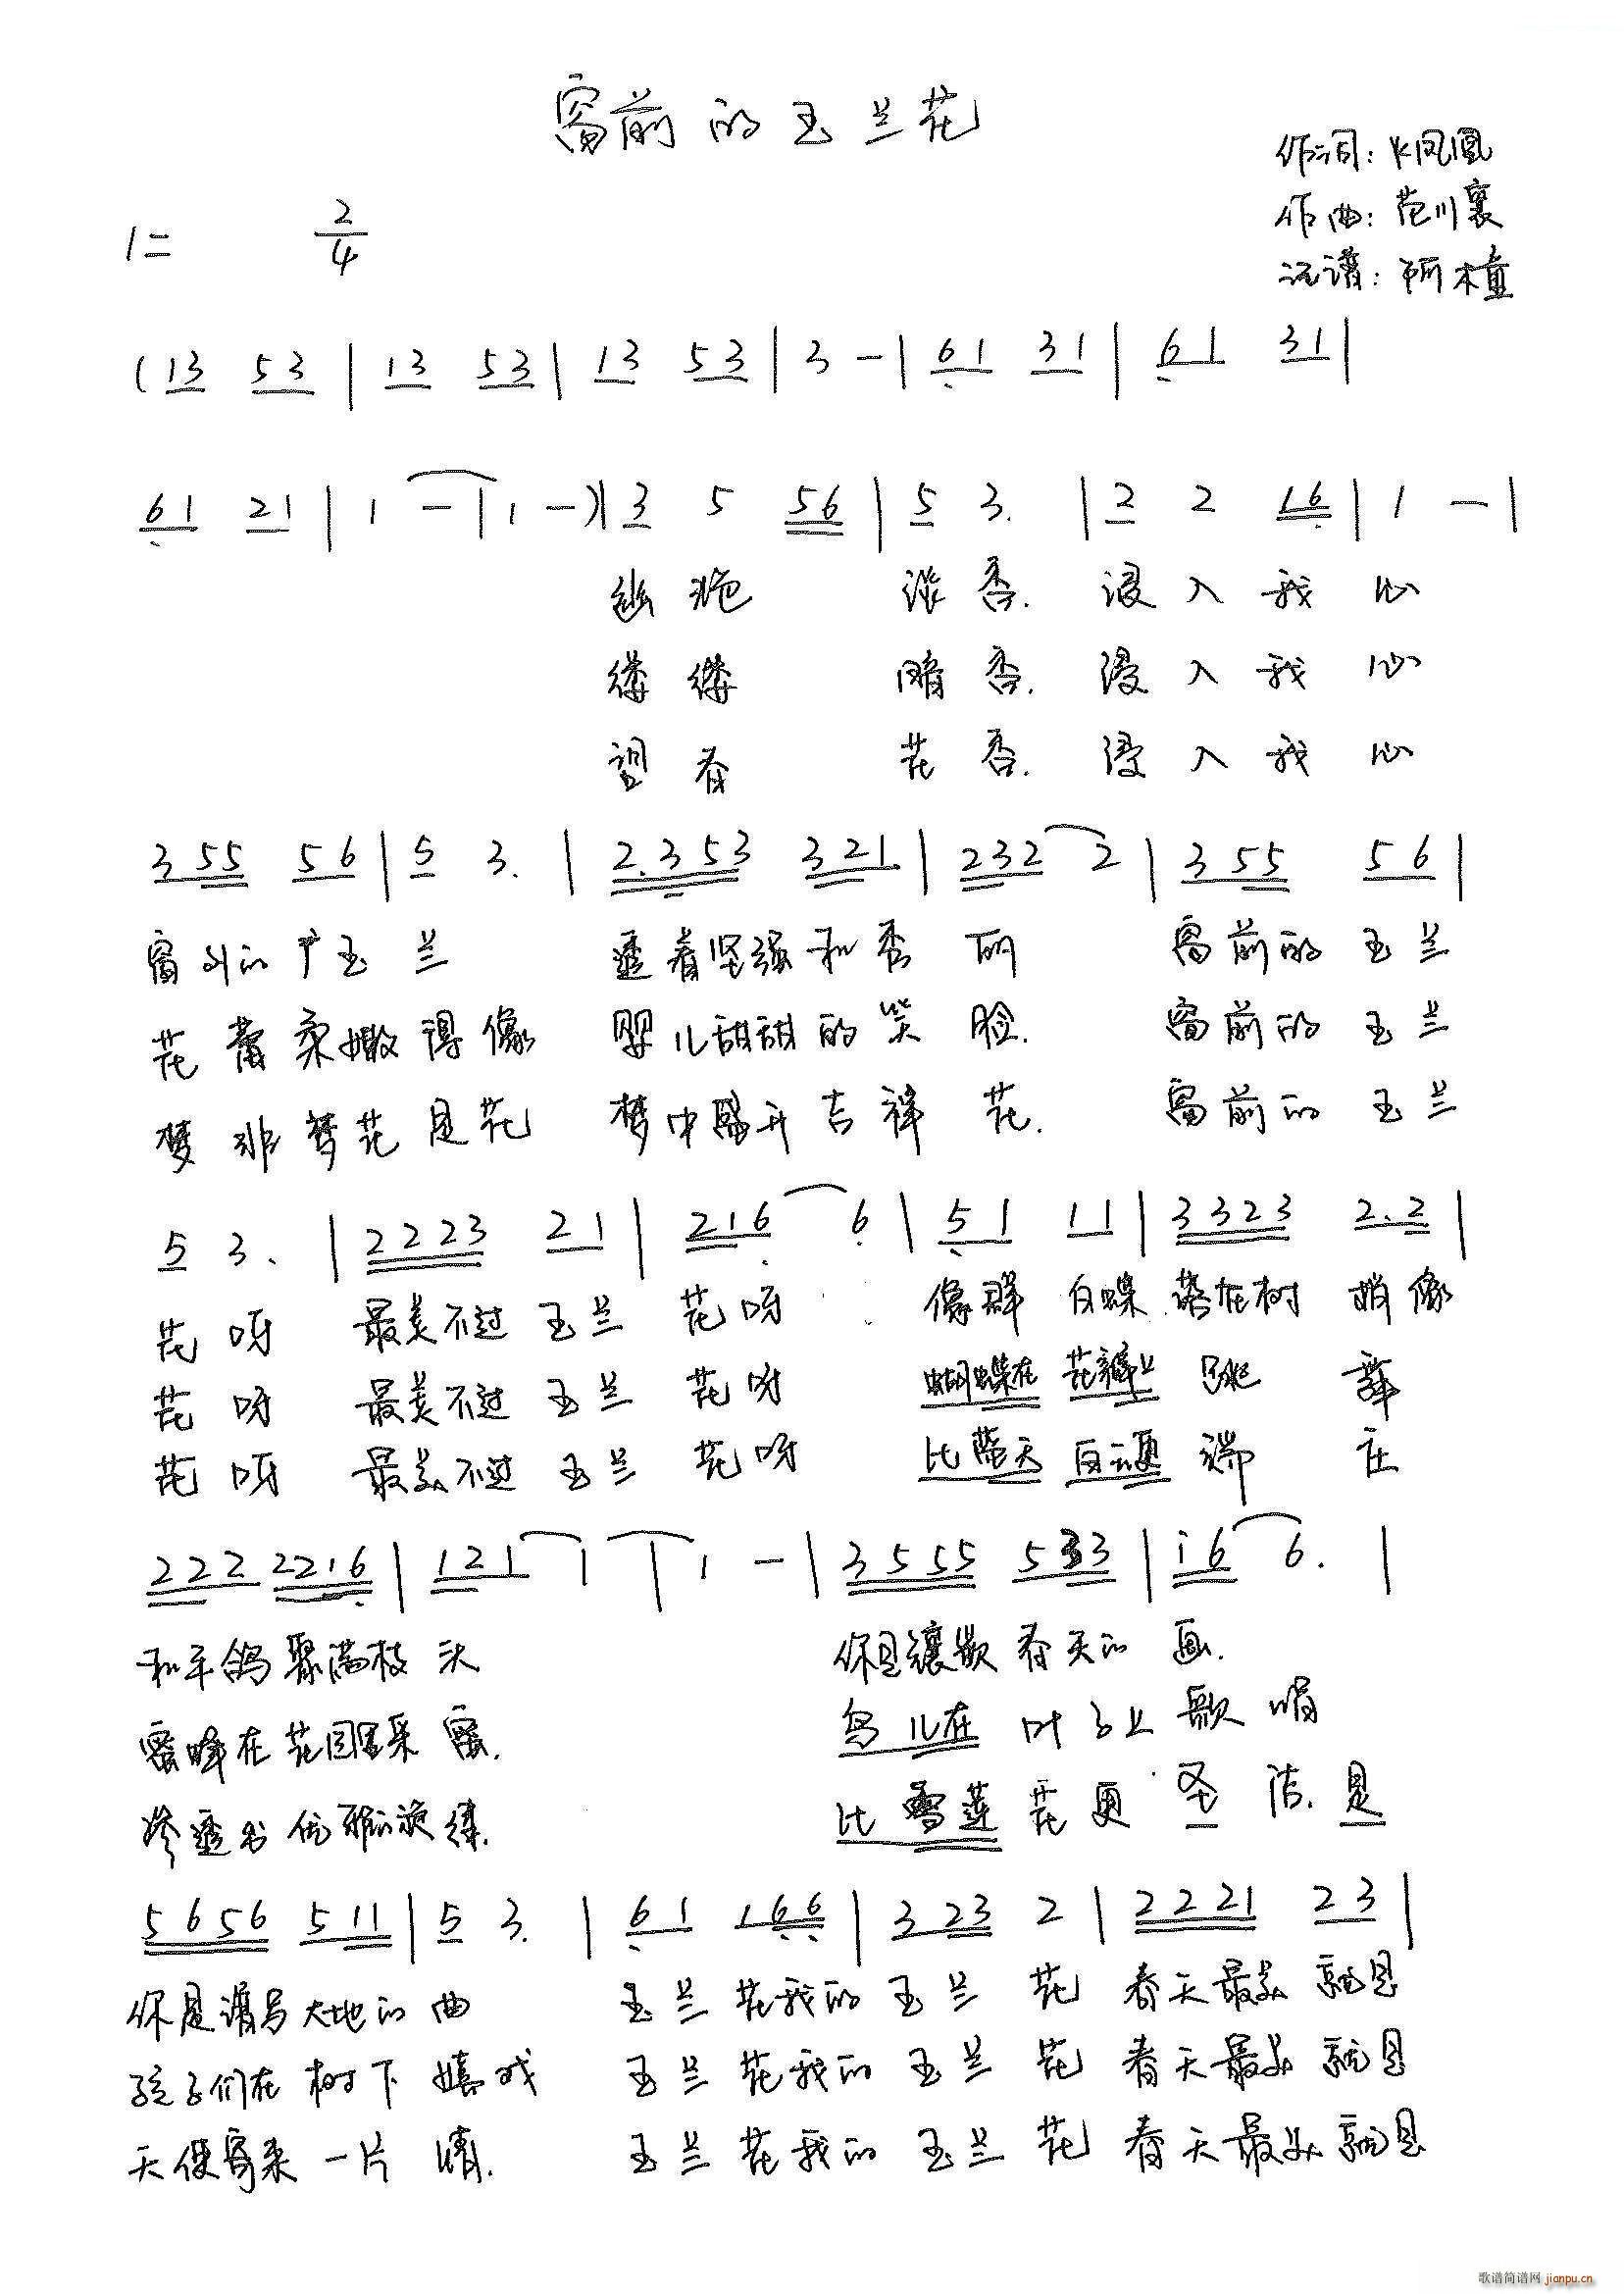 窗前的玉兰花
作词：火凤凰
作曲：范川襄
记谱：阿木童
1= 2/4
(13 53 | 13 53 | 13 53 | 3 - | 61 31 | 61 31 |
61 21 | 1 - | 1 -)| 3 5 56 | 5 3. | 2 2 16 | 1 - |
幽 淡香. 浸入我心
缕缕 暗香. 浸入我心
望春 花香. 浸入我心
3 55 56 | 5 3. | 2.353 321 | 232 2 | 3 55 56 |
窗外的 玉兰 透着坚强和秀丽 窗前的玉兰
花蕾柔嫩得像 婴儿甜甜的笑脸. 窗前的玉兰
梦非梦花是花 梦中盛开吉祥花. 窗前的玉兰
5 3. | 2223 21 | 216 6 | 51 11 | 3323 2.2 |
花呀 最美不过玉兰花呀 像群白蝶落在树梢像
花呀 最美不过玉兰花呀 蝴蝶在花瓣上跳舞
花呀 最美不过玉兰花呀 比蓝天白云更端庄
222 2216 | 121 1 | 1 - | 3555 533 | i6 6. |
和平鸽聚满枝头 你是 春天的画.
蜜蜂在花园里采蜜. 鸟儿在叶子上歌唱
渗透出优雅的旋律. 比雪莲花更圣洁.是
5656 511 | 5 3. | 61 166 | 3 23 2 | 2221 23 |
你是谱写大地的曲 玉兰花我的玉兰花 春天最美就是
孩子们在树下嬉戏 玉兰花我的玉兰花 春天最美就是
天使寄来一片情. 玉兰花我的玉兰花 春天最美就是
歌谱简谱网 jianpu.cn